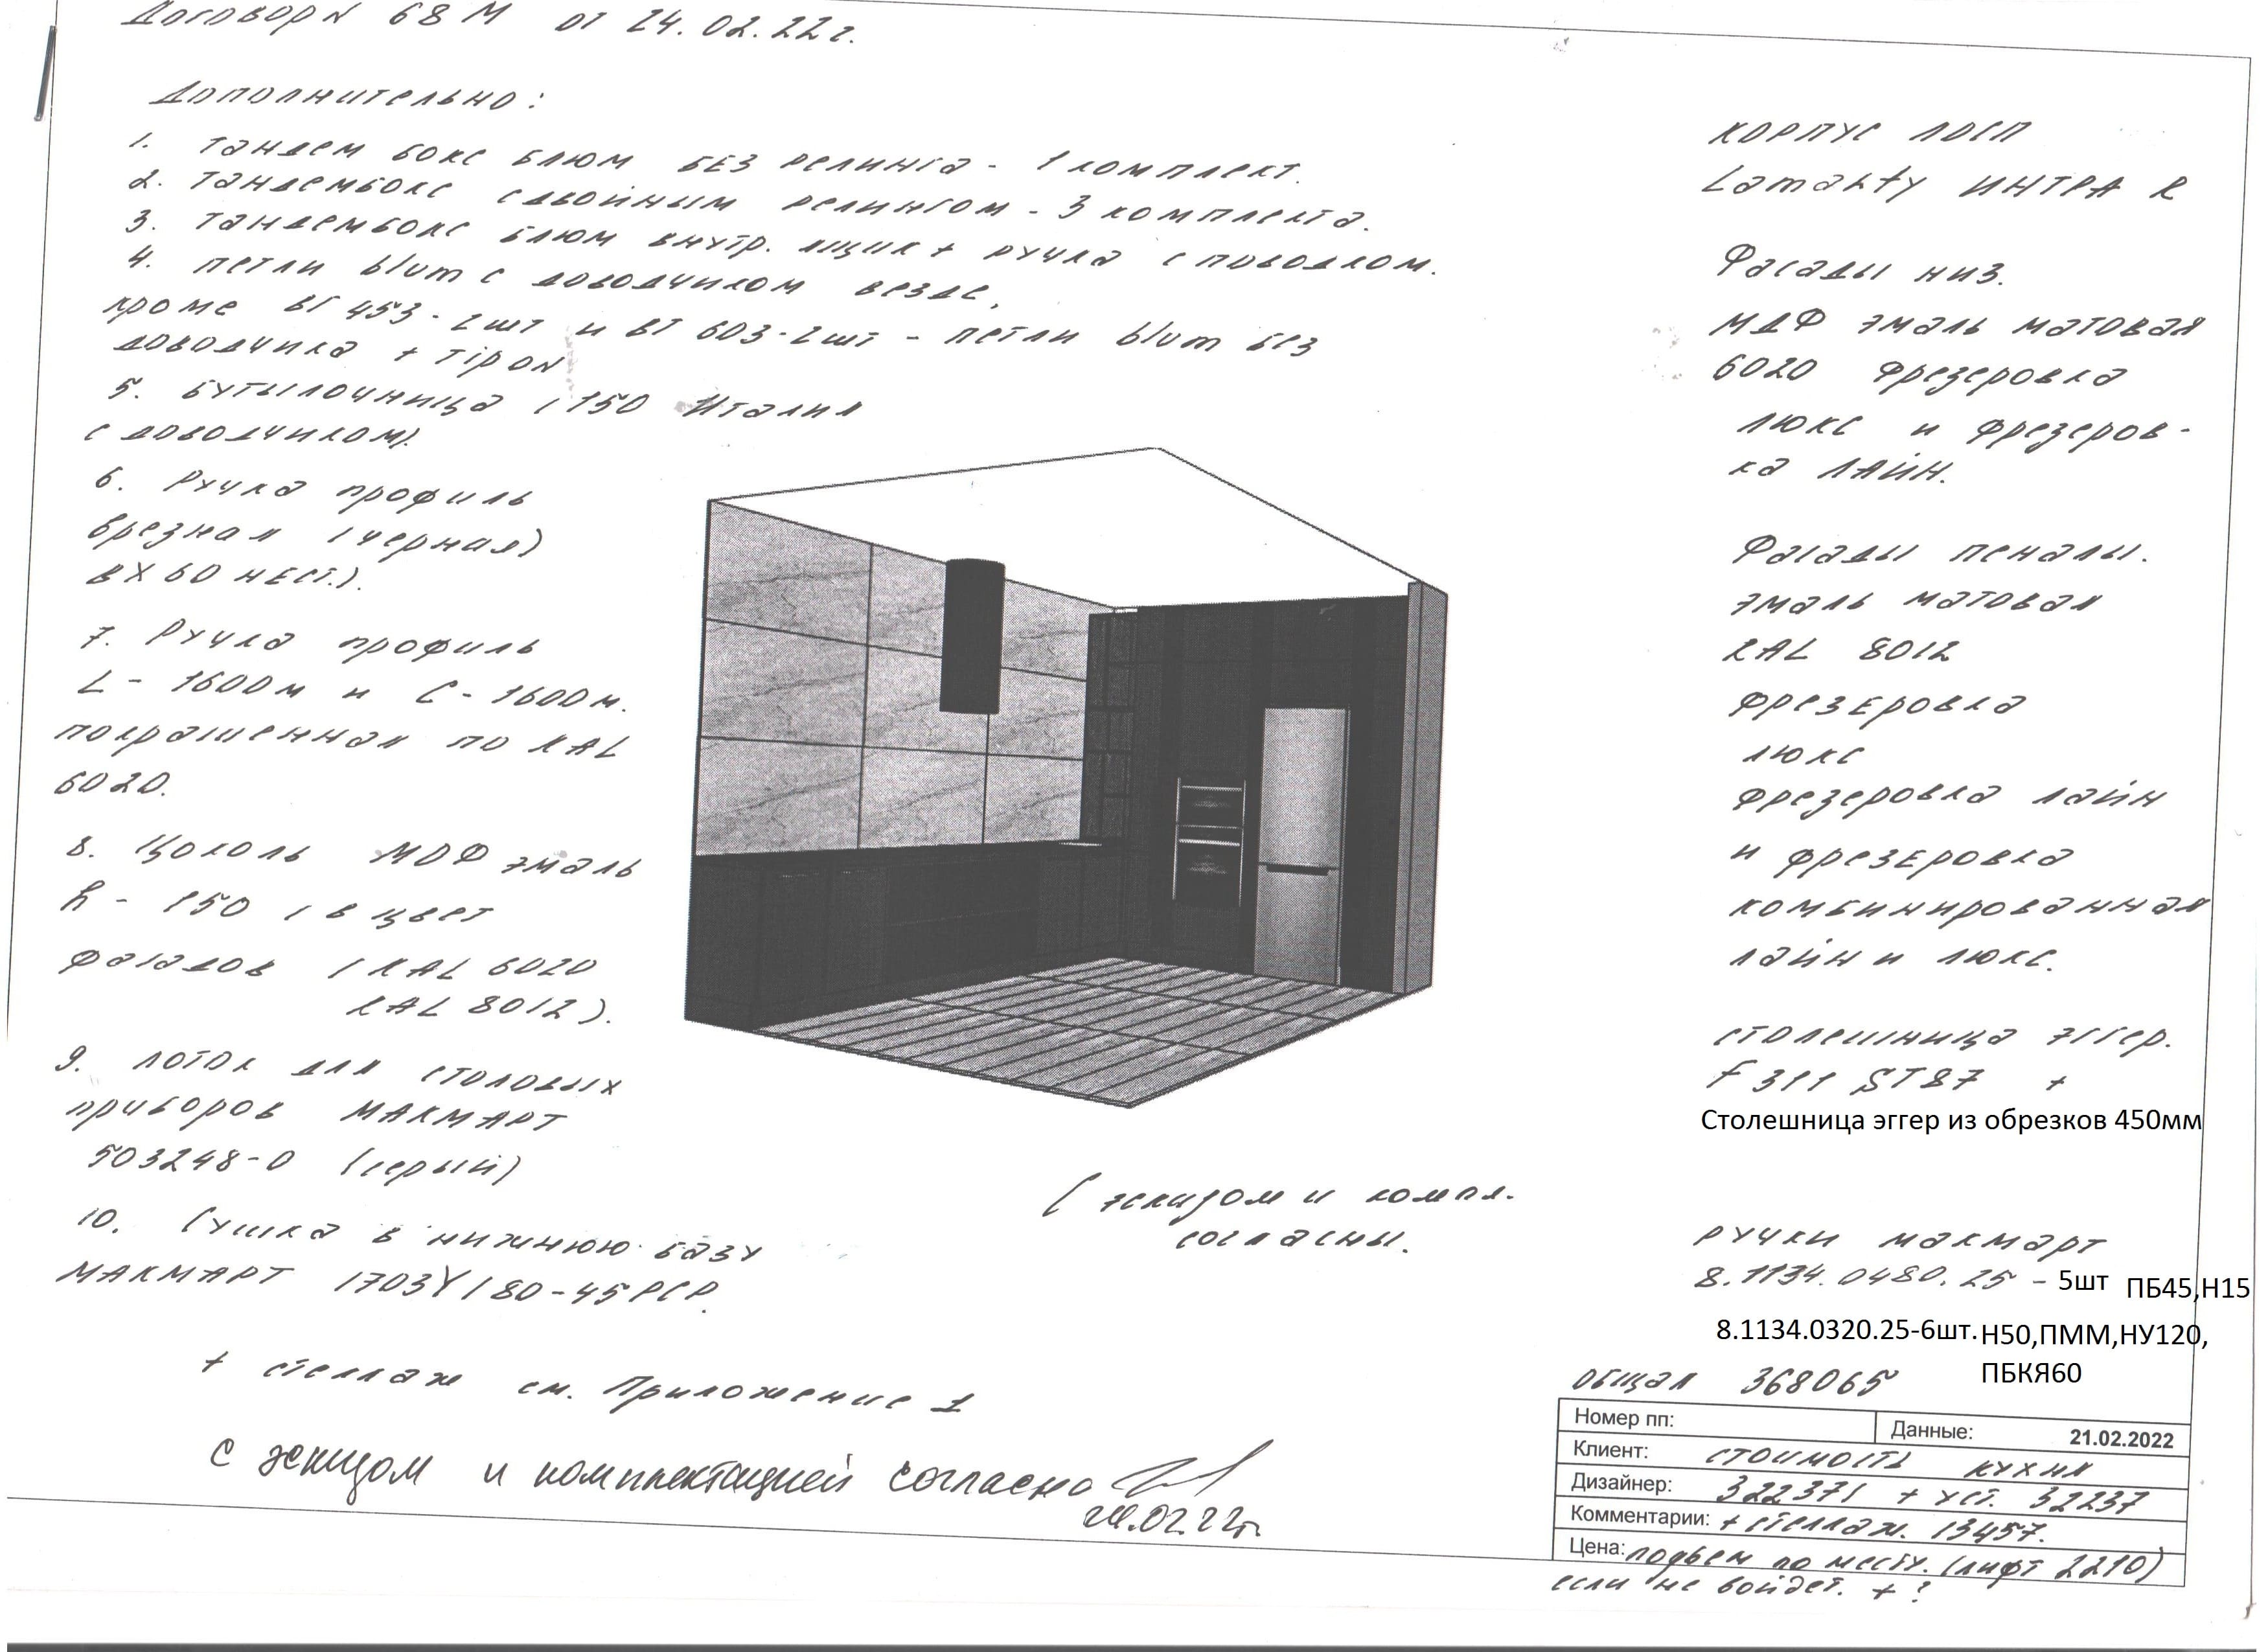 Договор N 68 М от 24.02.22г.
Дополнительно:
1. Тандем бокс блюм БЕЗ релинга - 1 комплект.
2. Тандембокс сдвойным релингом - 3 комплекта.
3. Тандембокс блюм внутр. ящик + ручка с поводком.
4. петли blum с доводчиком везде,
кроме ВГ 453-2шт и ВТ 603-2шт - петли blum без
доводчика + TipON
5. Бутылочница (150 Италия
с доводчиком).
6. Ручка профиль
врезная (черная)
7. Ручка профиль
L - 1600м и С - 1600м.
покрашенная по RAL
6020.
8. Цоколь МДФ эмаль
h - 150 (в цвет
фасадов (RAL 6020
RAL 8012).
9. Лоток для столовых
приборов МАКМАРТ
503248-0 (серый)
10. Сушка в нижнюю базу
МАКМАРТ 1703Y/80-45PCP.
+ стеллаж см. Приложение 1
С эскизом и комплектацией согласна
24.02.22г.
С эскизом и компл.
согласны.
КОРПУС ЛДСП
Lamarty ИНТРА R
Фасады низ.
МДФ эмаль матовая
6020 Фрезеровка
люкс и фрезеров-
ка ЛАЙН.
Фасады пеналы.
эмаль матовая
RAL 8012
фрезеровка
люкс
фрезеровка лайн
и фрезеровка
комбинированная
лайн и люкс.
столешница эггер.
F 311 ST87 +
Столешница эггер из обрезков 450мм
ручки макмарт
8.1134.0480.25 - 5шт ПБ45,Н15
8.1134.0320.25-6шт. Н50,ПММ,НУ120,
ПБКЯ60
общая 368065
Номер пп: Данные: 21.02.2022
Клиент: стоимость кухня
Дизайнер: 322371 + уст. 32237
Комментарии: + стеллаж. 13457.
Цена: подьем по месту. (лифт 2210)
если не войдет. + ?